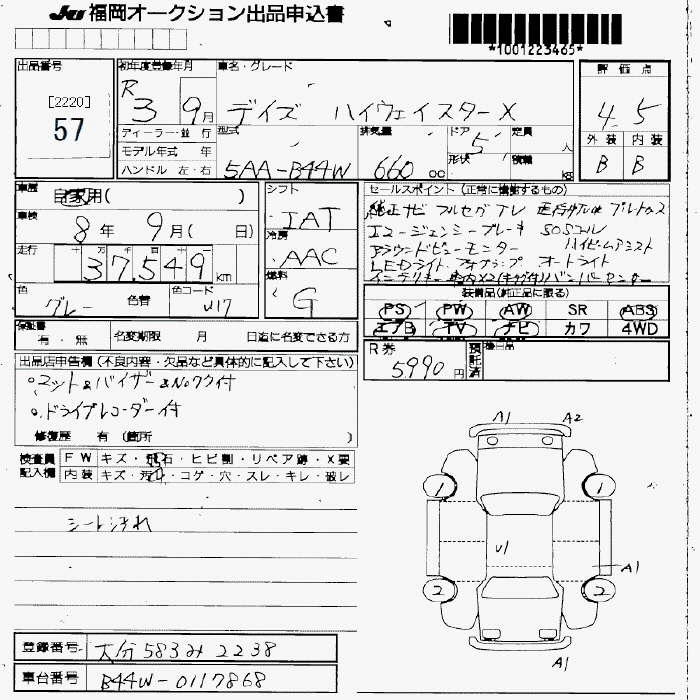 JU 福岡オークション出品申込書
*1001223465*
出品番号 初年度登録年月 車名・グレード 評価点
[2220]
57
R 3 9月 デイズ ハイウェイスターX 4.5
ディーラー・並行 型式 排気量 ドア 定員 外装 内装
モデル年式 年 5 人
ハンドル 左・右 5AA-B44W 660cc 形状 積載 kg B B
車歴 自家用( ) シフト セールスポイント (正常に機動するもの)
車検 8年 9月( 日) IAT
純正ナビ フルセグTV
エマージェンシーブレーキ SOSコール
アラウンドビューモニター ハイビームアシスト
LEDライト フォグランプ オートライト
走行 37,549km 冷房 AAC
色 グレー 色替 色コード 燃料 G
装備品(純正品に限る)
PS PW AW SR ABS
エアB TV ナビ カワ 4WD
保証書 有・無 名変期限 月 日迄に名変できる方
R券 5,990円 預託済 後日品
出品店申告欄(不良内容・欠品など具体的に記入して下さい)
。マット&バイザー&Noワク付
。ドライブレコーダー付
修復歴 有 (箇所 )
検査員記入欄 FW キズ・飛石・ヒビ割・リペア跡・X要
内装 キズ・汚れ・コゲ・穴・スレ・キレ・破レ
シート汚れ
A1 A2
1 1
U1
A1
2 2
A1
登録番号 大分 583 み 2238
車台番号 B44W-0117868